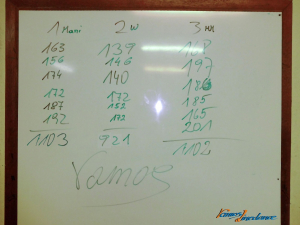 1 Mani 2 W 3
163 139 168
156 146 197
174 140 186
172 172 185
187 152 165
192 172 201
1103 921 1102
Vamos